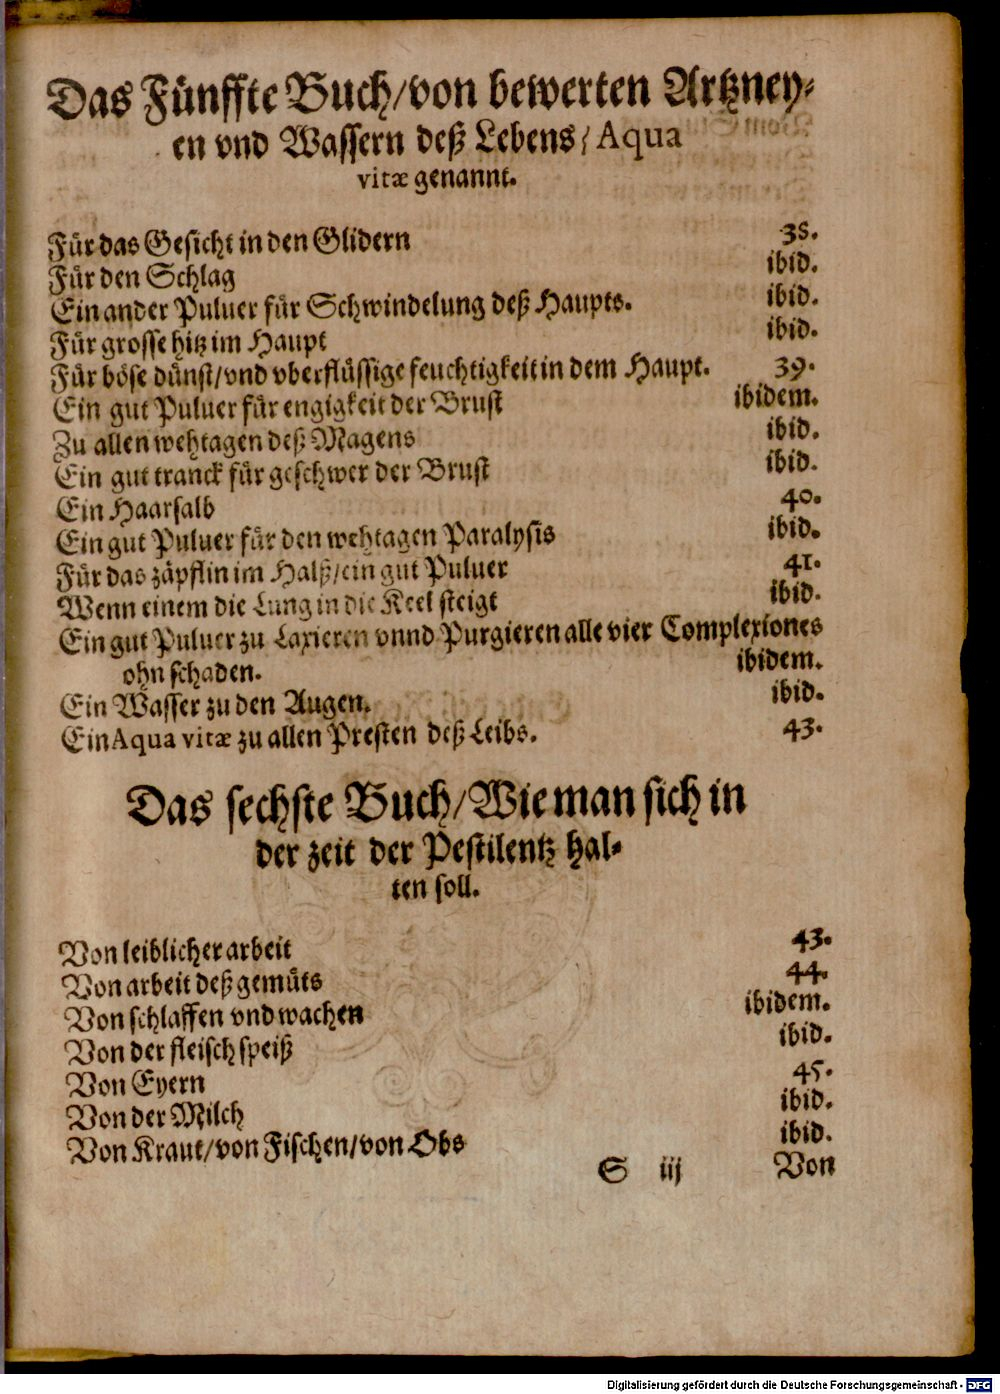 Das Fünffte Buch/von bewerten Artzney⸗
en vnd Wassern deß Lebens/Aqua
vitæ genannt.
Für das Gesicht in den Glidern 38.
Für den Schlag ibid.
Ein ander Puluer für Schwindelung deß Haupts. ibid.
Für grosse hitz im Haupt ibid.
Für böse dünst/vnd vberflüssige feuchtigkeit in dem Haupt. 39.
Ein gut Puluer für engigkeit der Brust ibidem.
Zu allen wehtagen deß Magens ibid.
Ein gut tranck für geschwer der Brust ibid.
Ein Haarsalb 40.
Ein gut Puluer für den wehtagen Paralysis ibid.
Für das zäpflin im Halß/ein gut Puluer 41.
Wenn einem die Lung in die Keel steigt ibid.
Ein gut Puluer zu Laxieren vnnd Purgieren alle vier Complexiones
ohn schaden. ibidem.
Ein Wasser zu den Augen. ibid.
Ein Aqua vitæ zu allen Presten deß Leibs. 43.
Das sechste Buch/Wie man sich in
der zeit der Pestilentz hal⸗
ten soll.
Von leiblicher arbeit 43.
Von arbeit deß gemüts 44.
Von schlaffen vnd wachen ibidem.
Von der fleisch speiß ibid.
Von Eyern 45.
Von der Milch ibid.
Von Kraut/von Fischen/von Obs ibid.
S iij Von
Digitalisierung gefördert durch die Deutsche Forschungsgemeinschaft - DFG